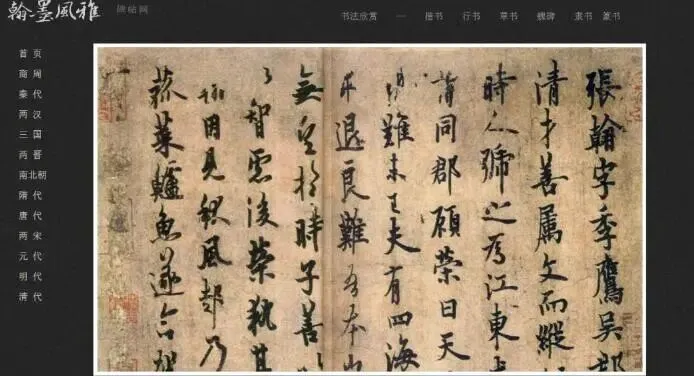 翰墨風雅
碑帖网
书法欣赏 — 楷书 行书 草书 魏碑 隶书 篆书
首页
商周
秦代
两汉
三国
两晋
南北朝
隋代
唐代
两宋
元代
明代
清代
張翰字季鷹吳郡
清才善屬文而縱
時人號之為江東
謂同郡顧榮曰天
難未已夫有四海
退良難吾本山
無望於時子善
智慮後榮執其
翰因見秋風起乃
菰菜鱸魚遂命駕